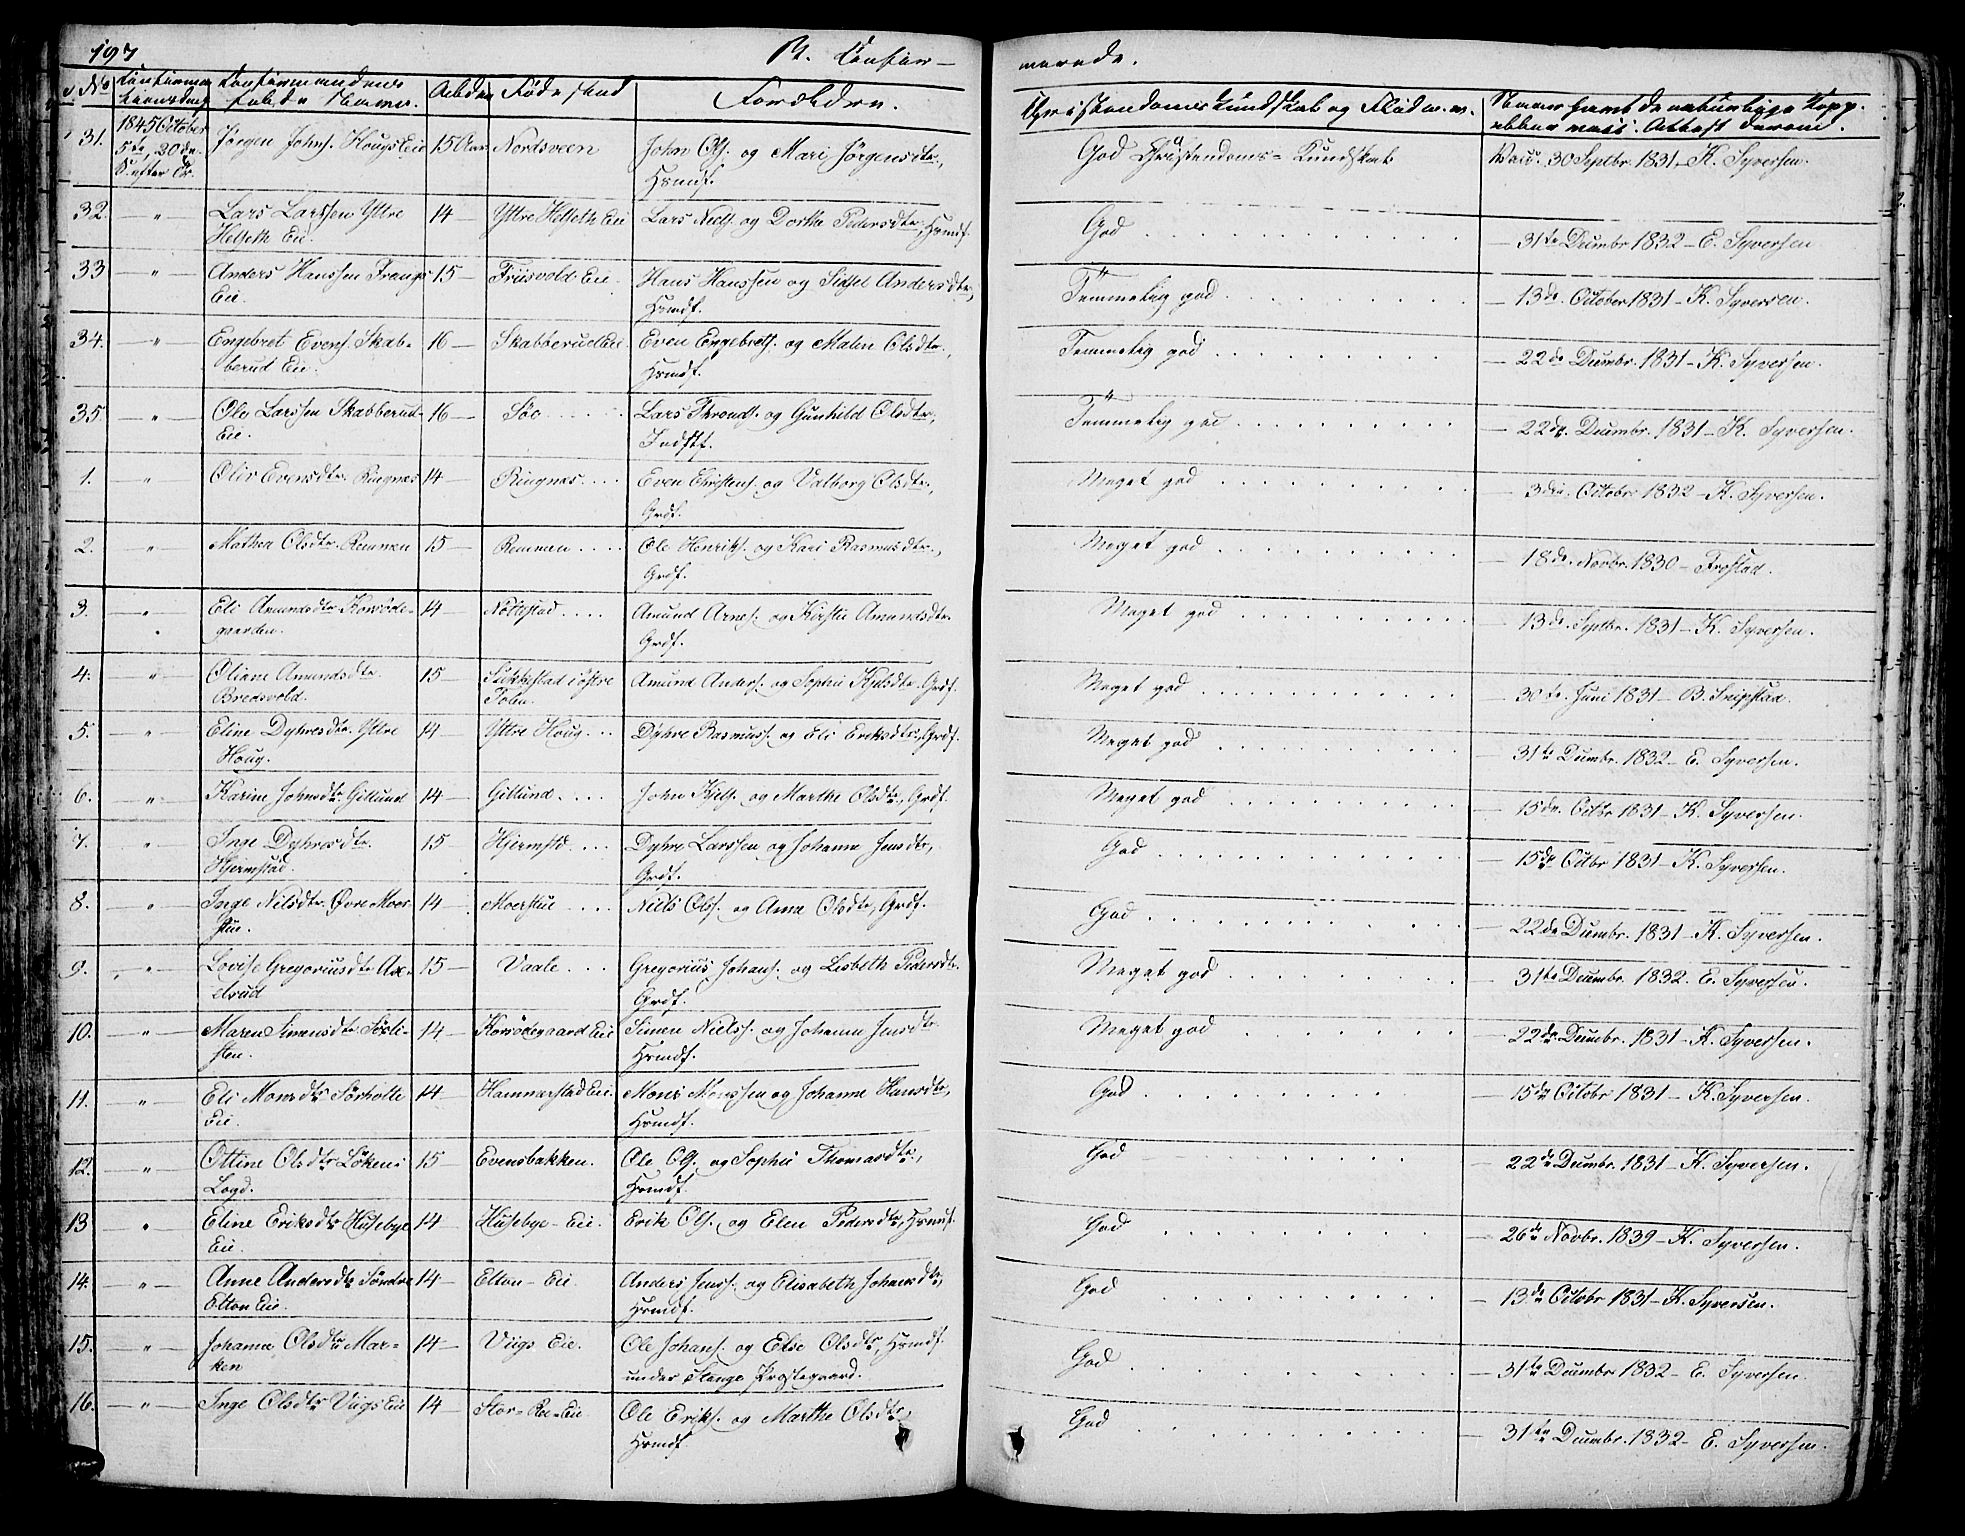 197
B. Confir-
merede.
No
Confirma-
tionsdag
Confirmandens
fulde Navn.
Alder
Fødested
Forældre.
Christendomskundskab og Flid m. m.
Naar havt de naturlige Kopp.
eller vacc. Attest derom.
31.
1845 October
5te, 20de
S. efter Tr.
Jørgen Johns. Hougs Eie
15 Aar
Nordsveen
John Ols. og Mari Jørgensdtr.,
Hsmdf.
God Christendoms-Kundskab
Vacc. 30 Septbr. 1831 - K. Syversen.
32.
— " —
Lars Larssen Yttre
Helseth Eie.
14 —
Yttre Helseth Eie
Lars Niels. og Dorthe Pedersdtr., Hsmdf.
God
— 31te Decembr 1832 - E. Syversen
33
— " —
Anders Hanssen Frangs
Eie.
15 —
Friisvold Eie.
Hans Hanssen og Sidsel Andersdtr.,
Hsmdf.
Temmelig god
— 13de October 1831 - K. Syversen.
34.
— " —
Engebret Evens. Skab-
berud Eie.
16 —
Skabberud Eie
Even Engebrets. og Malin Olsdtr.,
Hsmdf.
Temmelig god
— 22de Decembr. 1831 - K. Syversen.
35.
— " —
Ole Larssen Skabberud-
Eie.
16 —
Søe
Lars Thronds. og Gunhild Olsdtr.,
Indstf.
Temmelig god
— 22de Decembr. 1831 - K. Syversen.
1.
"
Oliv Evensdtr. Ringnæs
14 —
Ringnæs
Even Christens. og Valborg Olsdtr.,
Grdf.
Meget god
— 3die Octobr 1832 - K. Syversen.
2.
"
Mathea Olsdtr. Remmen
15 —
Remmen
Ole Henriks. og Kari Rasmusdtr.,
Grdf.
Meget god
— 18de Novbr. 1830 - Frostad.
3.
— " —
Eli Amundsdtr Korsøde-
gaarden.
14 —
Nøttestad
Amund Arnes. og Kirstie Amundsdtr.
Grdf.
Meget god
— 13de Septbr. 1831 - K. Syversen.
4.
— " —
Oliane Amundsdtr.
Bredsvold.
15 —
Østre
Amund Anders. og Sophie Kjelsdtr. Grdf.
Meget god
— 30te Juni 1831 - B. Snipstad.
5.
— " —
Eline Dyhresdtr. Yttre
Houg.
14 —
Yttre Houg
Dyhre Rasmuss. og Eli Eriksdtr., Grdf.
Meget god
— 31te Decembr. 1832 - E. Syversen.
6.
— " —
Karine Johnsdtr. Gillund
14 —
Gillund
John Kjels. og Marthe Olsdtr., Grdf.
Meget god
— 15de Octbr 1831 - K. Syversen.
7.
— " —
Inge Dyhresdtr.
Hjermstad.
15 —
Hjermstd
Dyhre Larssen og Johanne Jensdtr.,
Grdf.
God
— 15de Octbr 1831 - K. Syversen.
8.
— " —
Inge Nilsdtr. Øvre Moer-
stue.
14 —
Moerstue
Niels Ols. og Anne Olsdtr., Grdf.
God
— 22de Decmbr. 1831 - K. Syversen.
9.
— " —
Lovise Gregoriusdtr. Ax-
elrud
15 —
Vaale
Gregorius Johans. og Lisbeth Pedersdtr.
Grdf.
Meget god
— 31te Decembr. 1832. E. Syversen.
10.
— " —
Maren Simensdtr. Sørli-
sten.
14 —
Korsødegaard Eie
Simen Nielss. og Johanne Jensdtr.
Hsmdf.
Meget god
— 22de Decembr. 1831 - K. Syversen.
11.
— " —
Eli Monsdtr. Sørholte
Eie.
14 —
Hammerstad Eie.
Mons Monssen og Johanne Hansdtr.,
Hsmdf.
God
— 15de Octobr 1831 - K. Syversen.
12.
— " —
Ottine Olsdtr. Løkens
Logd.
15 —
Evensbakken.
Ole Ols. og Sophie Thomasdtr.,
Hsmdf.
God
— 22de Decmbr. 1831 - K. Syversen.
13
— " —
Eline Eriksdtr. Husebye
Eie.
14 —
Husebye - Eie.
Erik Ols. og Elen Pedersdtr., Hsmdf.
God
— 26de Novbr. 1839 - K. Syversen.
14.
— " —
Anne Andersdtr. Søndre
Elton Eie.
14 —
Elton - Eie
Anders Jenss. og Elisabeth Johansdtr.,
Hsmdf.
God
— 13de Octobr 1831 - K. Syversen.
15.
— " —
Johanne Olsdtr. Mar-
ken
14 —
Viigs Eie.
Ole Johans. og Else Olsdtr., Hsmdf.
under Stange Præstegaard.
God
— 31te Decembr 1832 - E. Syversen.
16.
— " —
Inge Olsdtr. Viigs Eie
14 —
Stor-Ree-Eie
Ole Eriks. og Marthe Olsdtr.,
Hsmdf.
God
— 31te Decmbr. 1832 - E. Syversen.